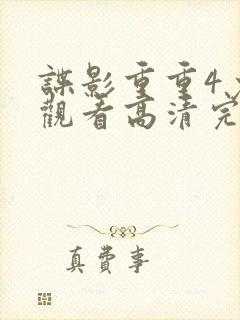 諜影重重4
觀看高清完
真費事